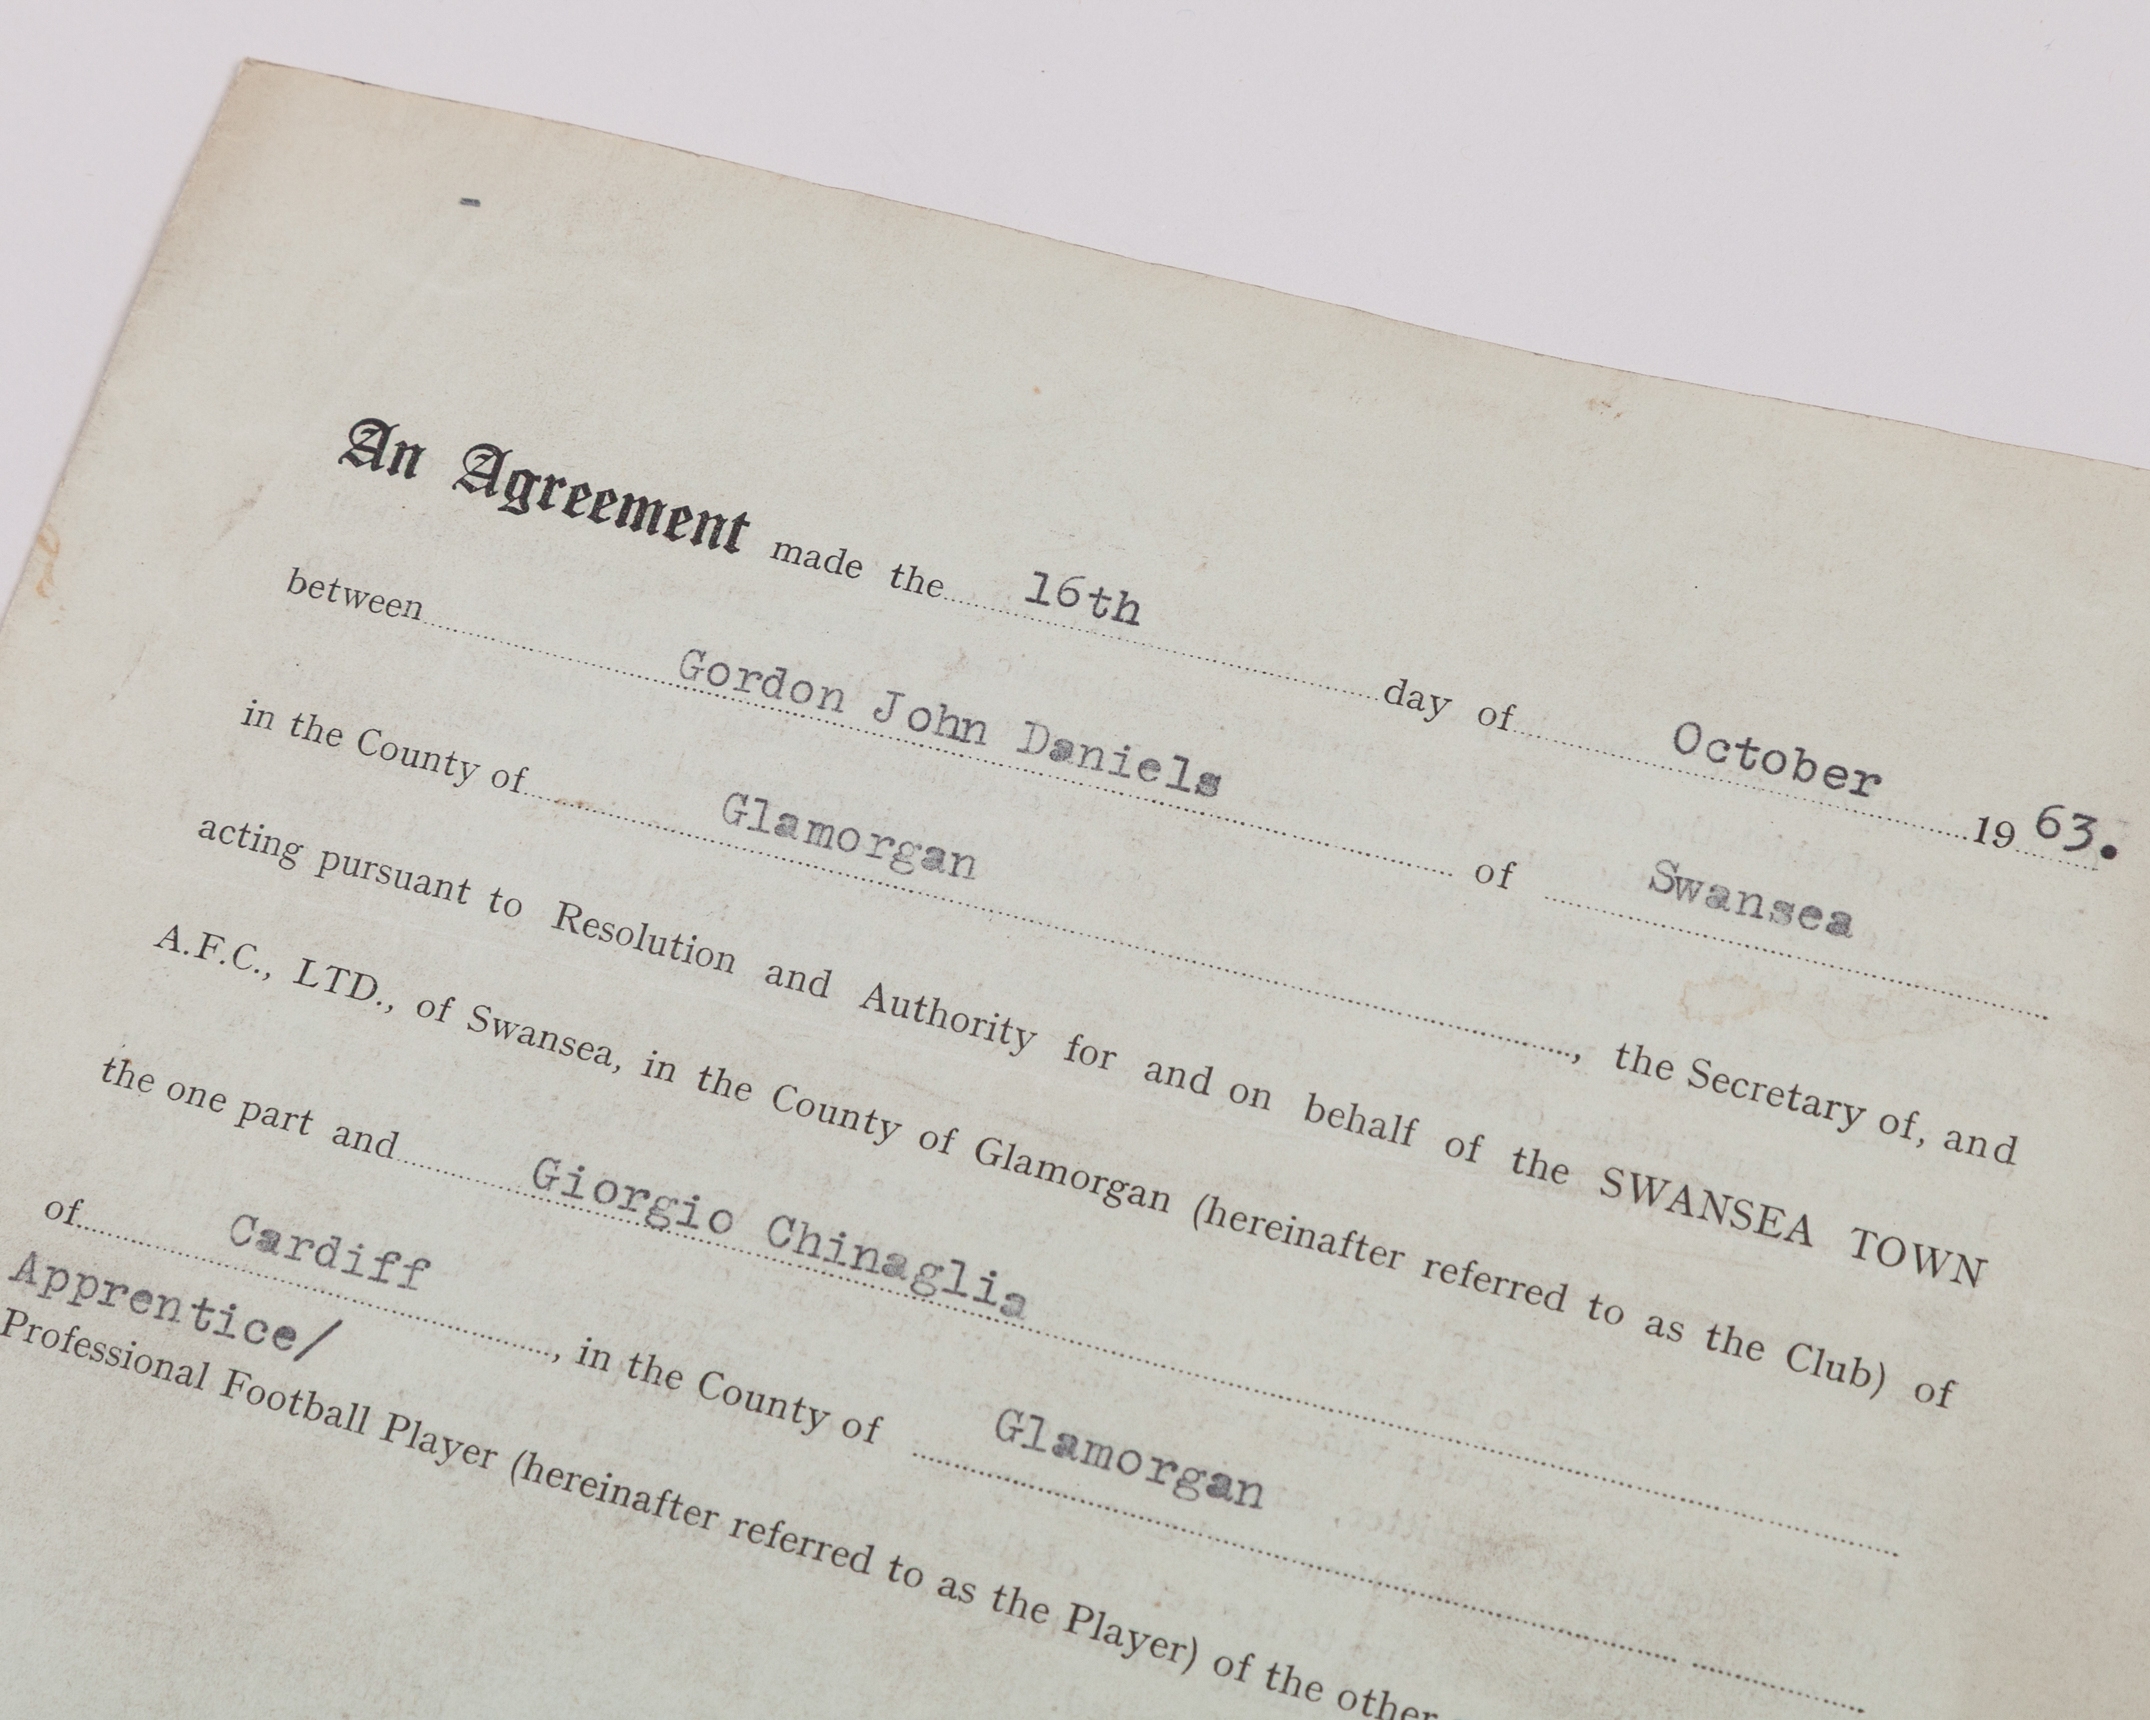 An Agreement made the 16th day of October 1963.
between Gordon John Daniels of Swansea
in the County of Glamorgan, the Secretary of, and
acting pursuant to Resolution and Authority for and on behalf of the SWANSEA TOWN
A.F.C., LTD., of Swansea, in the County of Glamorgan (hereinafter referred to as the Club) of
the one part and Giorgio Chinaglia
of Cardiff, in the County of Glamorgan
Apprentice/
Professional Football Player (hereinafter referred to as the Player) of the other